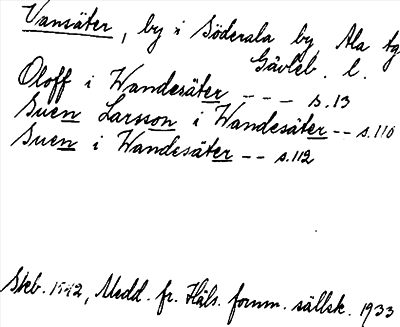 Vansäter, by i Söderala by, Ala tg
Gävleb. l.
Oloff i Wandesäter - - - s. 13
Suen Larsson i Wandesäter -- s. 110
Suen i Wandesäter -- s. 112
Skb. 1542, Medd. fr. Häls. fornm. sällsk. 1933